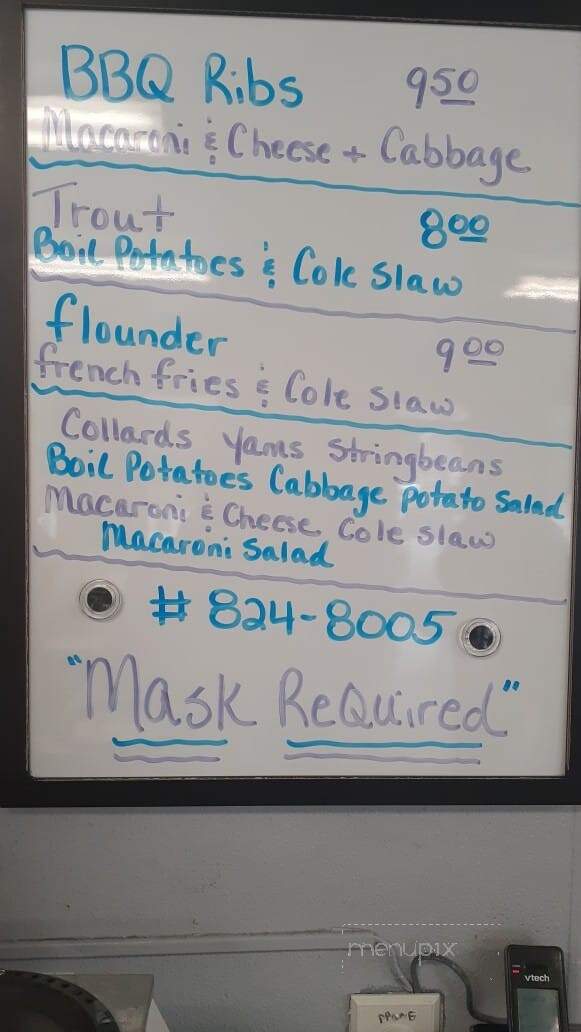 BBQ Ribs 9 50
Macaroni & Cheese + Cabbage
Trout 8 00
Boil Potatoes & Cole Slaw
flounder 9 00
french fries & Cole Slaw
Collards Yams Stringbeans
Boil Potatoes Cabbage Potato Salad
Macaroni & Cheese Cole Slaw
Macaroni Salad
# 824-8005
"Mask Required"
menupix
vtech